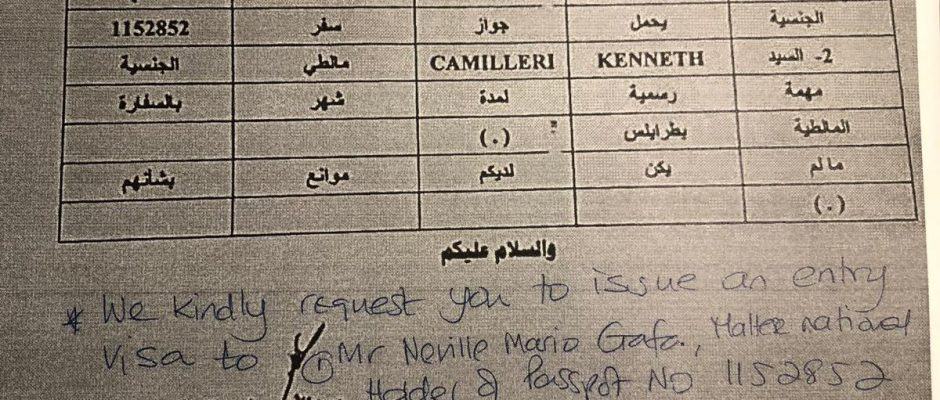 الجنسية يحمل جواز سفر 1152852
2- السيد KENNETH CAMILLERI مالطي الجنسية
مهمة رسمية لمدة شهر بالسفارة
المالطية بطرابلس (.)
مالم يكن لديكم موانع بشأنهم
(.)
والسلام عليكم
* We kindly request you to issue an entry
visa to ① Mr Neville Mario Gafa., Maltee national
Holder of Passport No 1152852